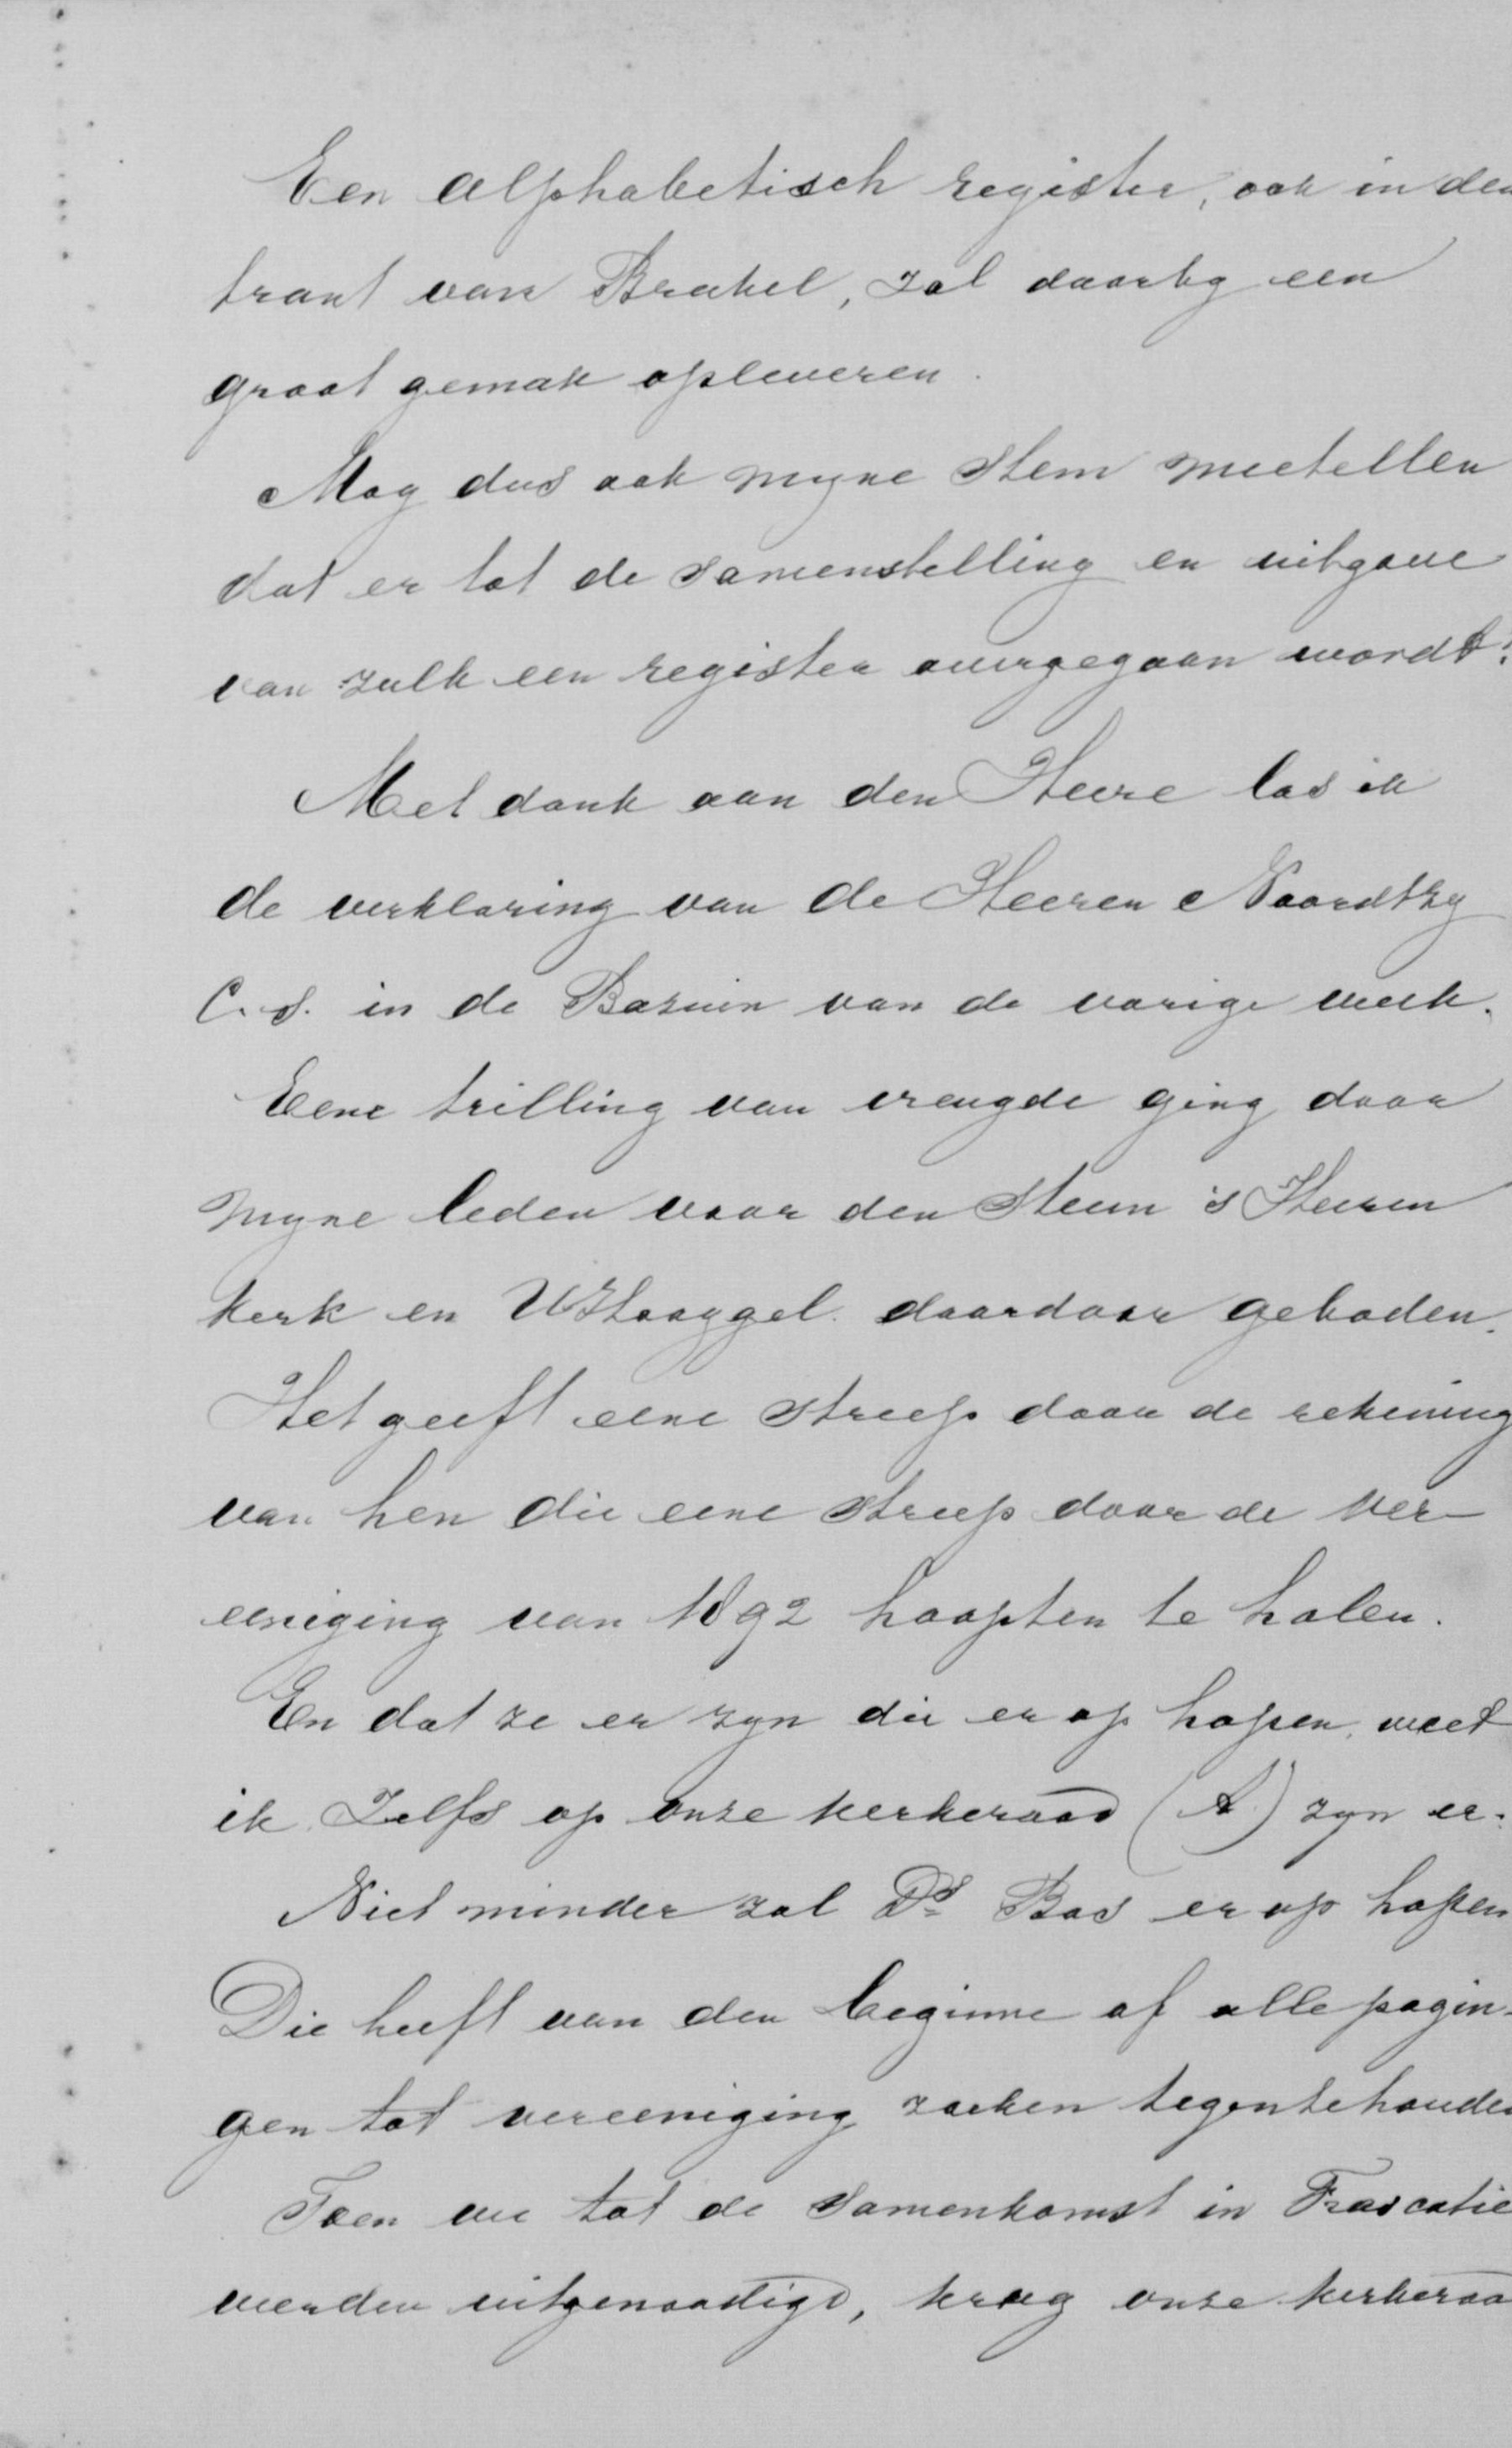 Een alphabetisch register, ook in den
trant van Brakel, zal daarby een
groot gemak opleveren.
Mag dus ook myne stem meetellen
dat er tot de samenstelling en uitgave
van zulk een register overgegaan wordt!
Met dank aan den Heere las ik
de verklaring van de Heeren Noordtzy
C.S. in de Bazuin van de vorige week.
Eene trilling van vreugde ging door
myne leden voor den steun 's Heeren
kerk en UHooggel. daardoor geboden.
Het geeft eene streep door de rekening
van hen die eene streep door de ver-
eeniging van 1892 hoopten te halen.
En dat ze er zyn die er op hopen, weet
ik. Zelfs op onze kerkeraad (A.) zyn er.
Niet minder zal Ds Bos er op hopen
Die heeft van den beginne af alle pogin-
gen tot vereeniging zoeken tegentehouden
Toen we tot de samenkomst in Frascatie
werden uitgenoodigd, kreeg onze kerkeraa